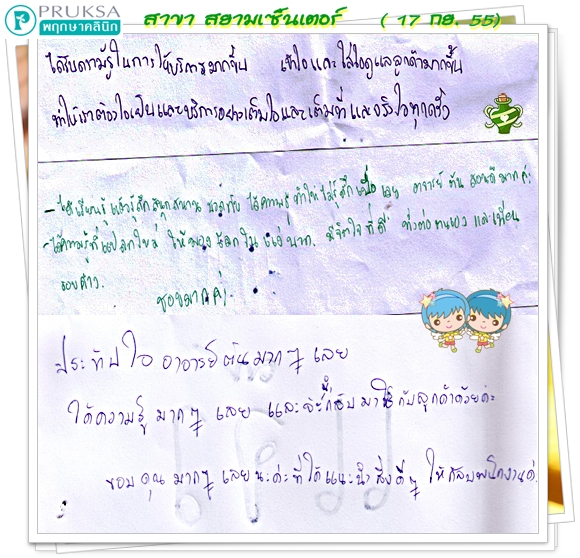 PRUKSA
พฤกษาคลินิก
สาขา สยามเซ็นเตอร์ ( 17 กย. 55)
ได้รับความรู้ในการให้บริการมากขึ้น เข้าใจและใส่ใจดูแลลูกค้ามากขึ้น
ทำให้เราต้องใจเย็นและบริการอย่างเต็มใจและเต็มที่และจริงใจทุกครั้ง
- ได้เรียนรู้แล้วรู้สึกสนุกสนาน ได้ความรู้ ทำให้ไม่รู้สึกเบื่อเลย อาจารย์ ต้น สอนดีมากค่ะ
- ได้ความรู้ที่แปลกใหม่ ให้มองโลกในแง่บวก มีจิตใจที่ดี ทั้งต่อตนเอง และเพื่อน
รอบข้าง.
ชอบมากค่ะ
ประทับใจ อาจารย์ต้นมากๆ เลย
ได้ความรู้ มากๆ เลย และจะนำกลับมาใช้กับลูกค้าด้วยค่ะ
ขอบคุณ มากๆ เลยนะค่ะที่ได้แนะนำสิ่งดีๆ ให้กับพนักงานค่ะ